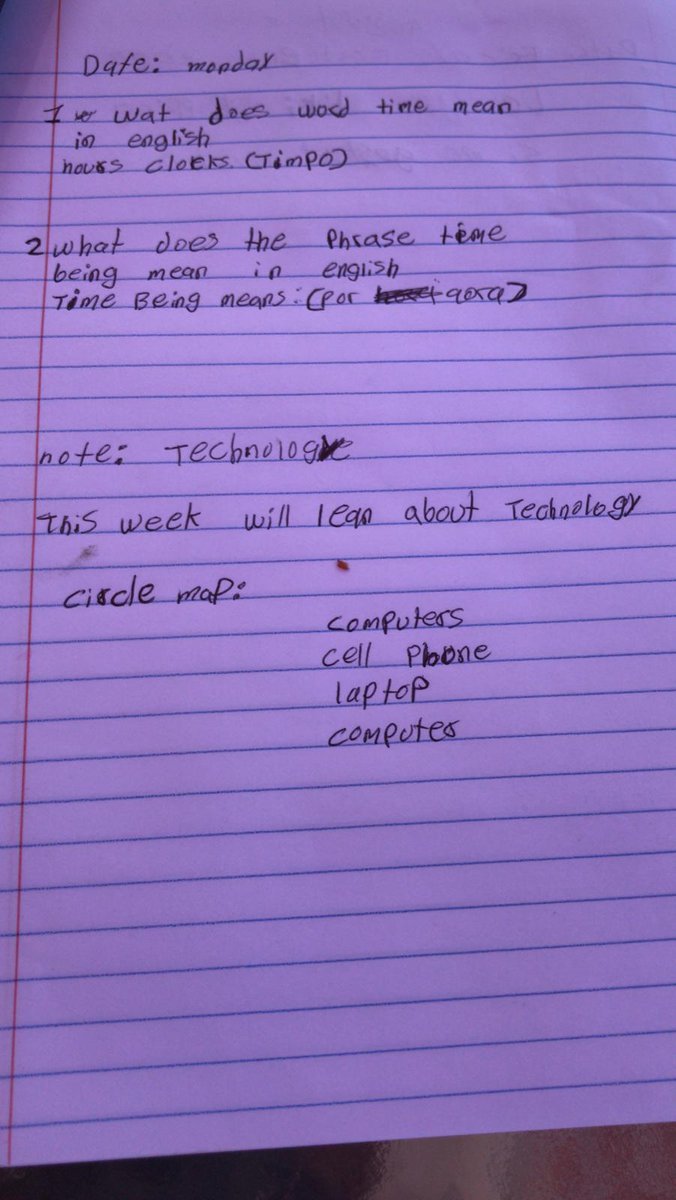 Date: monday
1 wat does word time mean
in english
hours clocks. (Timpo)
2 what does the Phrase time
being mean in english
Time Being means: (por aora)
note: Technologe
This week will lean about Technology
circle map:
computers
cell Phone
laptop
computer